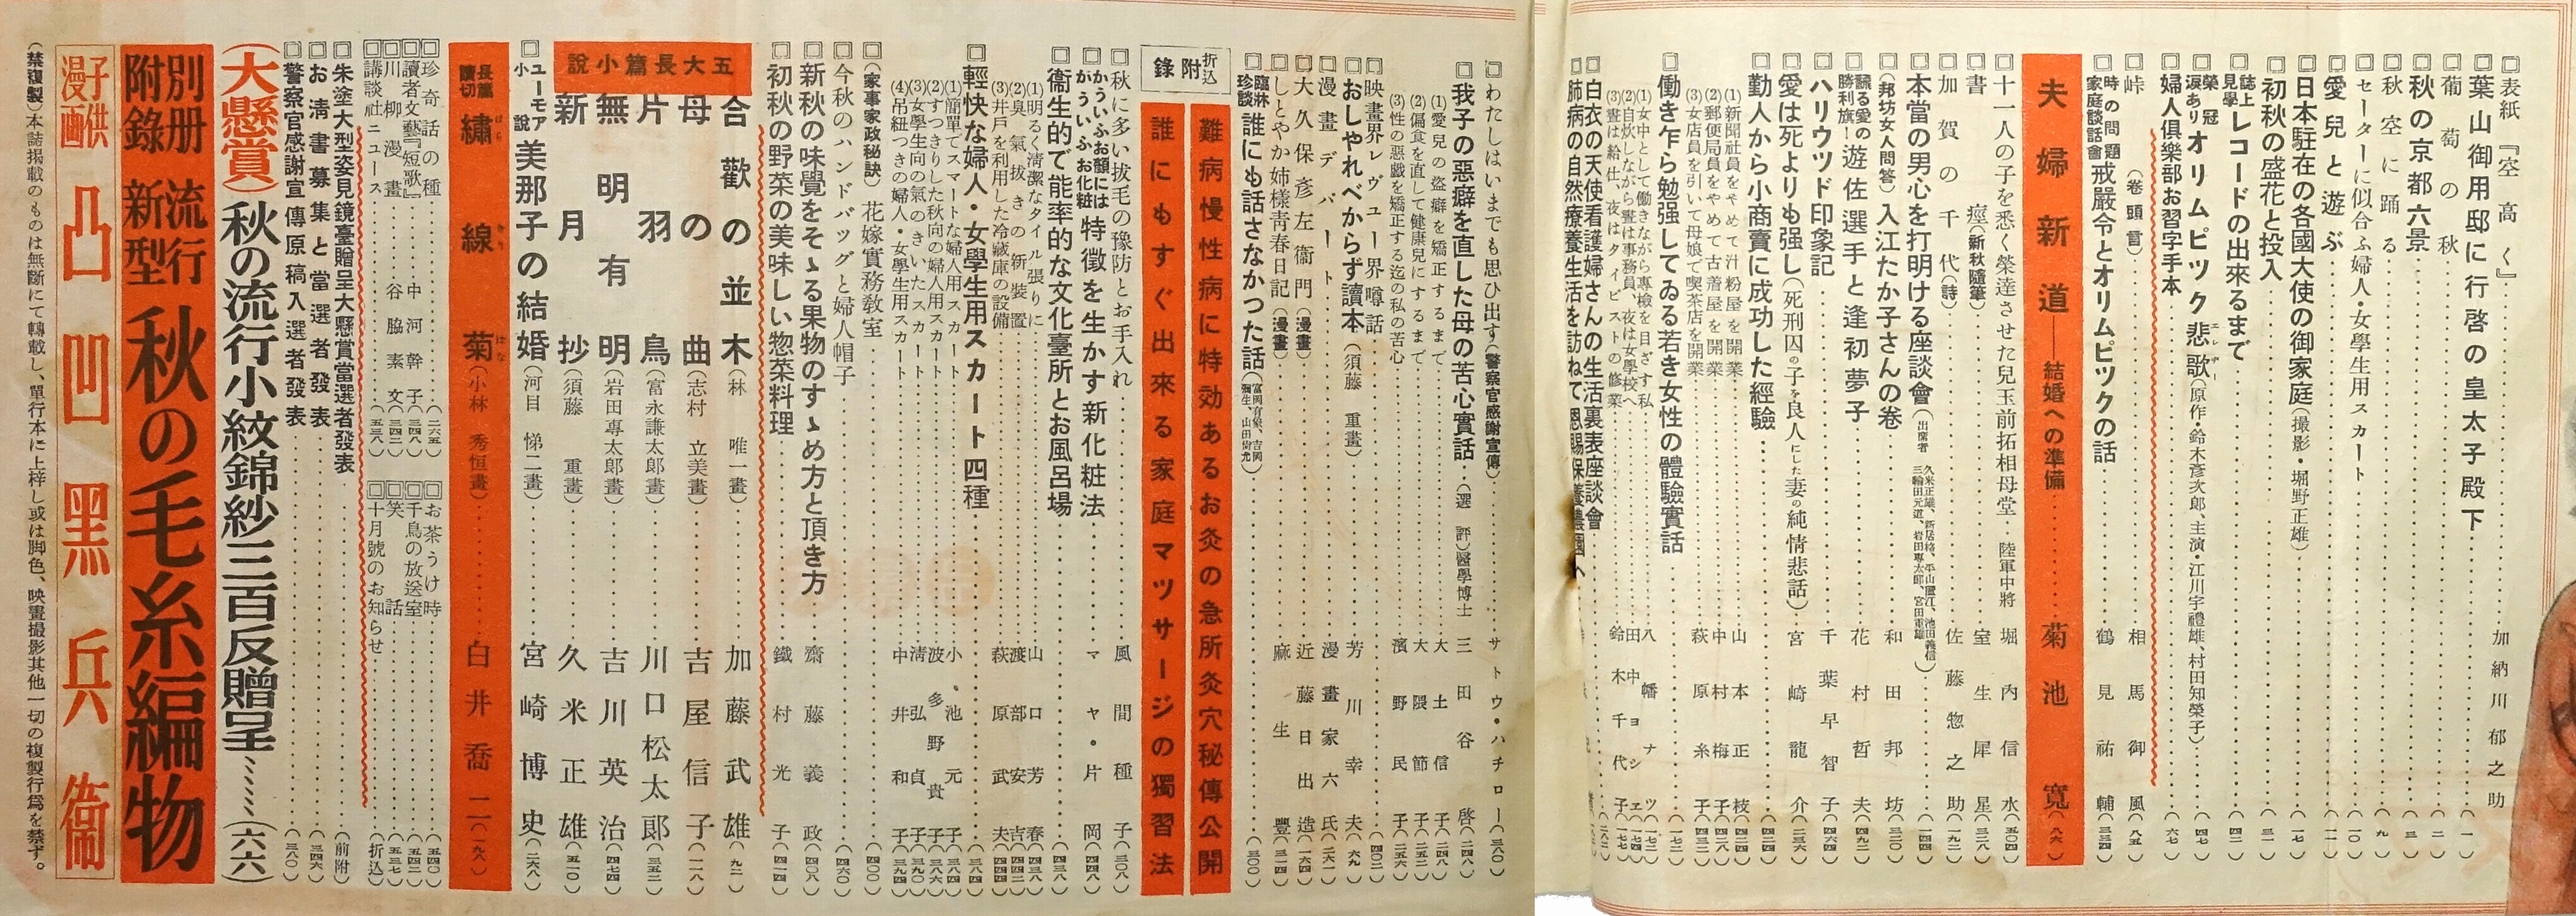 表紙『空高く』 加納川郁之助(一)
葉山御用邸に行啓の皇太子殿下(一)
葡萄の秋(二)
秋の京都六景(三)
秋空に踊る(九)
セーターに似合ふ婦人・女學生用スカート(一〇)
愛兒と遊ぶ(一一)
日本駐在の各國大使の御家庭(撮影・堀野正雄)(一七)
初秋の盛花と投入(三一)
誌上見學 レコードの出來るまで(四二)
榮冠涙あり オリムピック悲歌(エレヂー)(原作・鈴木彦次郎、主演・江川宇禮雄、村田知榮子)(四七)
婦人倶樂部お習字手本(六七)
峠(卷頭言) 相馬御風(八五)
時の問題家庭談話會 戒嚴令とオリムピックの話 鶴見祐輔(三三四)
夫婦新道―結婚への準備 菊池寛(八六)
十一人の子を悉く榮達させた兒玉前拓相母堂 陸軍中將 堀内信水(五〇四)
書痙(新秋隨筆) 室生犀星(三三八)
加賀の千代(詩) 佐藤惣之助(一九二)
本當の男心を打明ける座談會(出席者 久米正雄、新居格、平山蘆江、池田義信、三輪田元道、岩田專太郎、宮田重雄)(一四四)
(邦坊女人問答)入江たか子さんの卷 和田邦坊(三三〇)
誦る愛の勝利旗! 遊佐選手と逢初夢子 花村哲夫(四九二)
ハリウッド印象記 千葉早智子(四六四)
愛は死よりも强し(死刑囚の子を良人にした妻の純情悲話) 宮崎龍介(二三六)
勤人から小商賣に成功した經驗(四二四)
(1)新聞社員をやめて汁粉屋を開業 山本正枝(四二四)
(2)郵便局員をやめて古着屋を開業 中村梅子(四二八)
(3)女店員を引いて母娘で喫茶店を開業 萩原糸子(四三二)
働き乍ら勉强してゐる若き女性の體驗實話(一七二)
(1)女中として働きながら專檢を目ざす私 八幡ナツ(一七二)
(2)自炊しながら晝は事務員、夜は女學校へ 田中ヨシヱ(一七四)
(3)晝は給仕、夜はタイピストの修業 鈴木千代子(一七七)
白衣の天使看護婦さんの生活裏表座談會(二八二)
肺病の自然療養生活を訪ねて
わたしはいまでも思ひ出す(警察官感謝宣傳) サトウ・ハチロー(三八〇)
我子の惡癖を直した母の苦心實話(選評)醫學博士 三田谷啓(二四八)
(1)愛兒の盜癖を矯正するまで 大土信子(二四八)
(2)偏食を直して健康兒にするまで 大隈節子(二五二)
(3)性の惡戲を矯正する迄の私の苦心 濱野民子(二五六)
映畫界レヴュー界噂話(四〇二)
おしやれべからず讀本(須藤重畫) 芳川幸夫(六九)
漫畫デパート 漫畫家六氏(二六一)
大久保彦左衞門(漫畫) 近藤日出造(一六四)
しとやか姉樣靑春日記(漫畫) 麻生豐(三一四)
臨牀珍談 誰にも話さなかつた話(富岡有象、吉岡彌生、山田尚允)(三〇〇)
折込附錄
難病慢性病に特効あるお灸の急所灸穴秘傳公開
誰にもすぐ出來る家庭マッサージの獨習法
秋に多い拔毛の豫防とお手入れ 風間種子(三〇八)
かういふお顏にはかういふお化粧 特徵を生かす新化粧法 マヤ・片岡(四八八)
衞生的で能率的な文化臺所とお風呂場(四三八)
(1)明るく淸潔なタイル張りに 山口芳春(四三八)
(2)臭氣拔きの新裝置 渡部安吉(四四二)
(3)井戸を利用した冷藏庫の設備 萩原武夫(四四四)
輕快な婦人・女學生用スカート四種(三八四)
(1)簡單でスマートな婦人用スカート 小池元子(三八四)
(2)すつきりした秋向の婦人用スカート 波多野貴子(三八六)
(3)女學生向の氣のきいたスカート 淸弘貞子(三九〇)
(4)吊紐つきの婦人・女學生用スカート 中井和子(三九四)
(家事家政秘訣) 花嫁實務敎室(四〇〇)
今秋のハンドバッグと婦人帽子(四六〇)
新秋の味覺をそゝる果物のすゝめ方と頂き方 齋藤義政(四〇八)
初秋の野菜の美味しい惣菜料理 鐵村光子(四一四)
五大長篇小說
合歡の並木(林唯一畫) 加藤武雄(九二)
母の曲(志村立美畫) 吉屋信子(一二八)
片羽鳥(富永謙太郎畫) 川口松太郎(三五二)
無明有明(岩田專太郎畫) 吉川英治(四七四)
新月抄(須藤重畫) 久米正雄(五一〇)
ユーモア小說 美那子の結婚(河目悌二畫) 宮崎博史(二六八)
長篇讀切 繍線菊(小林秀恒畫) 白井喬二(一九八)
珍奇話の種(二六五)
讀者文藝『短歌』 中河幹子(三四八)
川柳漫畫 谷脇素文(三四二)
講談社ニュース(五三八)
お茶うけ時(五四〇)
千鳥の放送室(五四二)
笑話(五三七)
十月號のお知らせ(折込)
朱塗大型姿見鏡臺贈呈大懸賞當選者發表(前附)
お淸書募集と當選者發表(三四六)
警察官感謝宣傳原稿入選者發表(三八〇)
(大懸賞)秋の流行小紋錦紗三百反贈呈(六六)
別册附錄 流行新型 秋の毛糸編物
子供漫画 凸凹黑兵衞
(禁複製)本誌揭載のものは無斷にて轉載し、單行本に上梓し或は脚色、映畫撮影其他一切の複製行爲を禁ず。